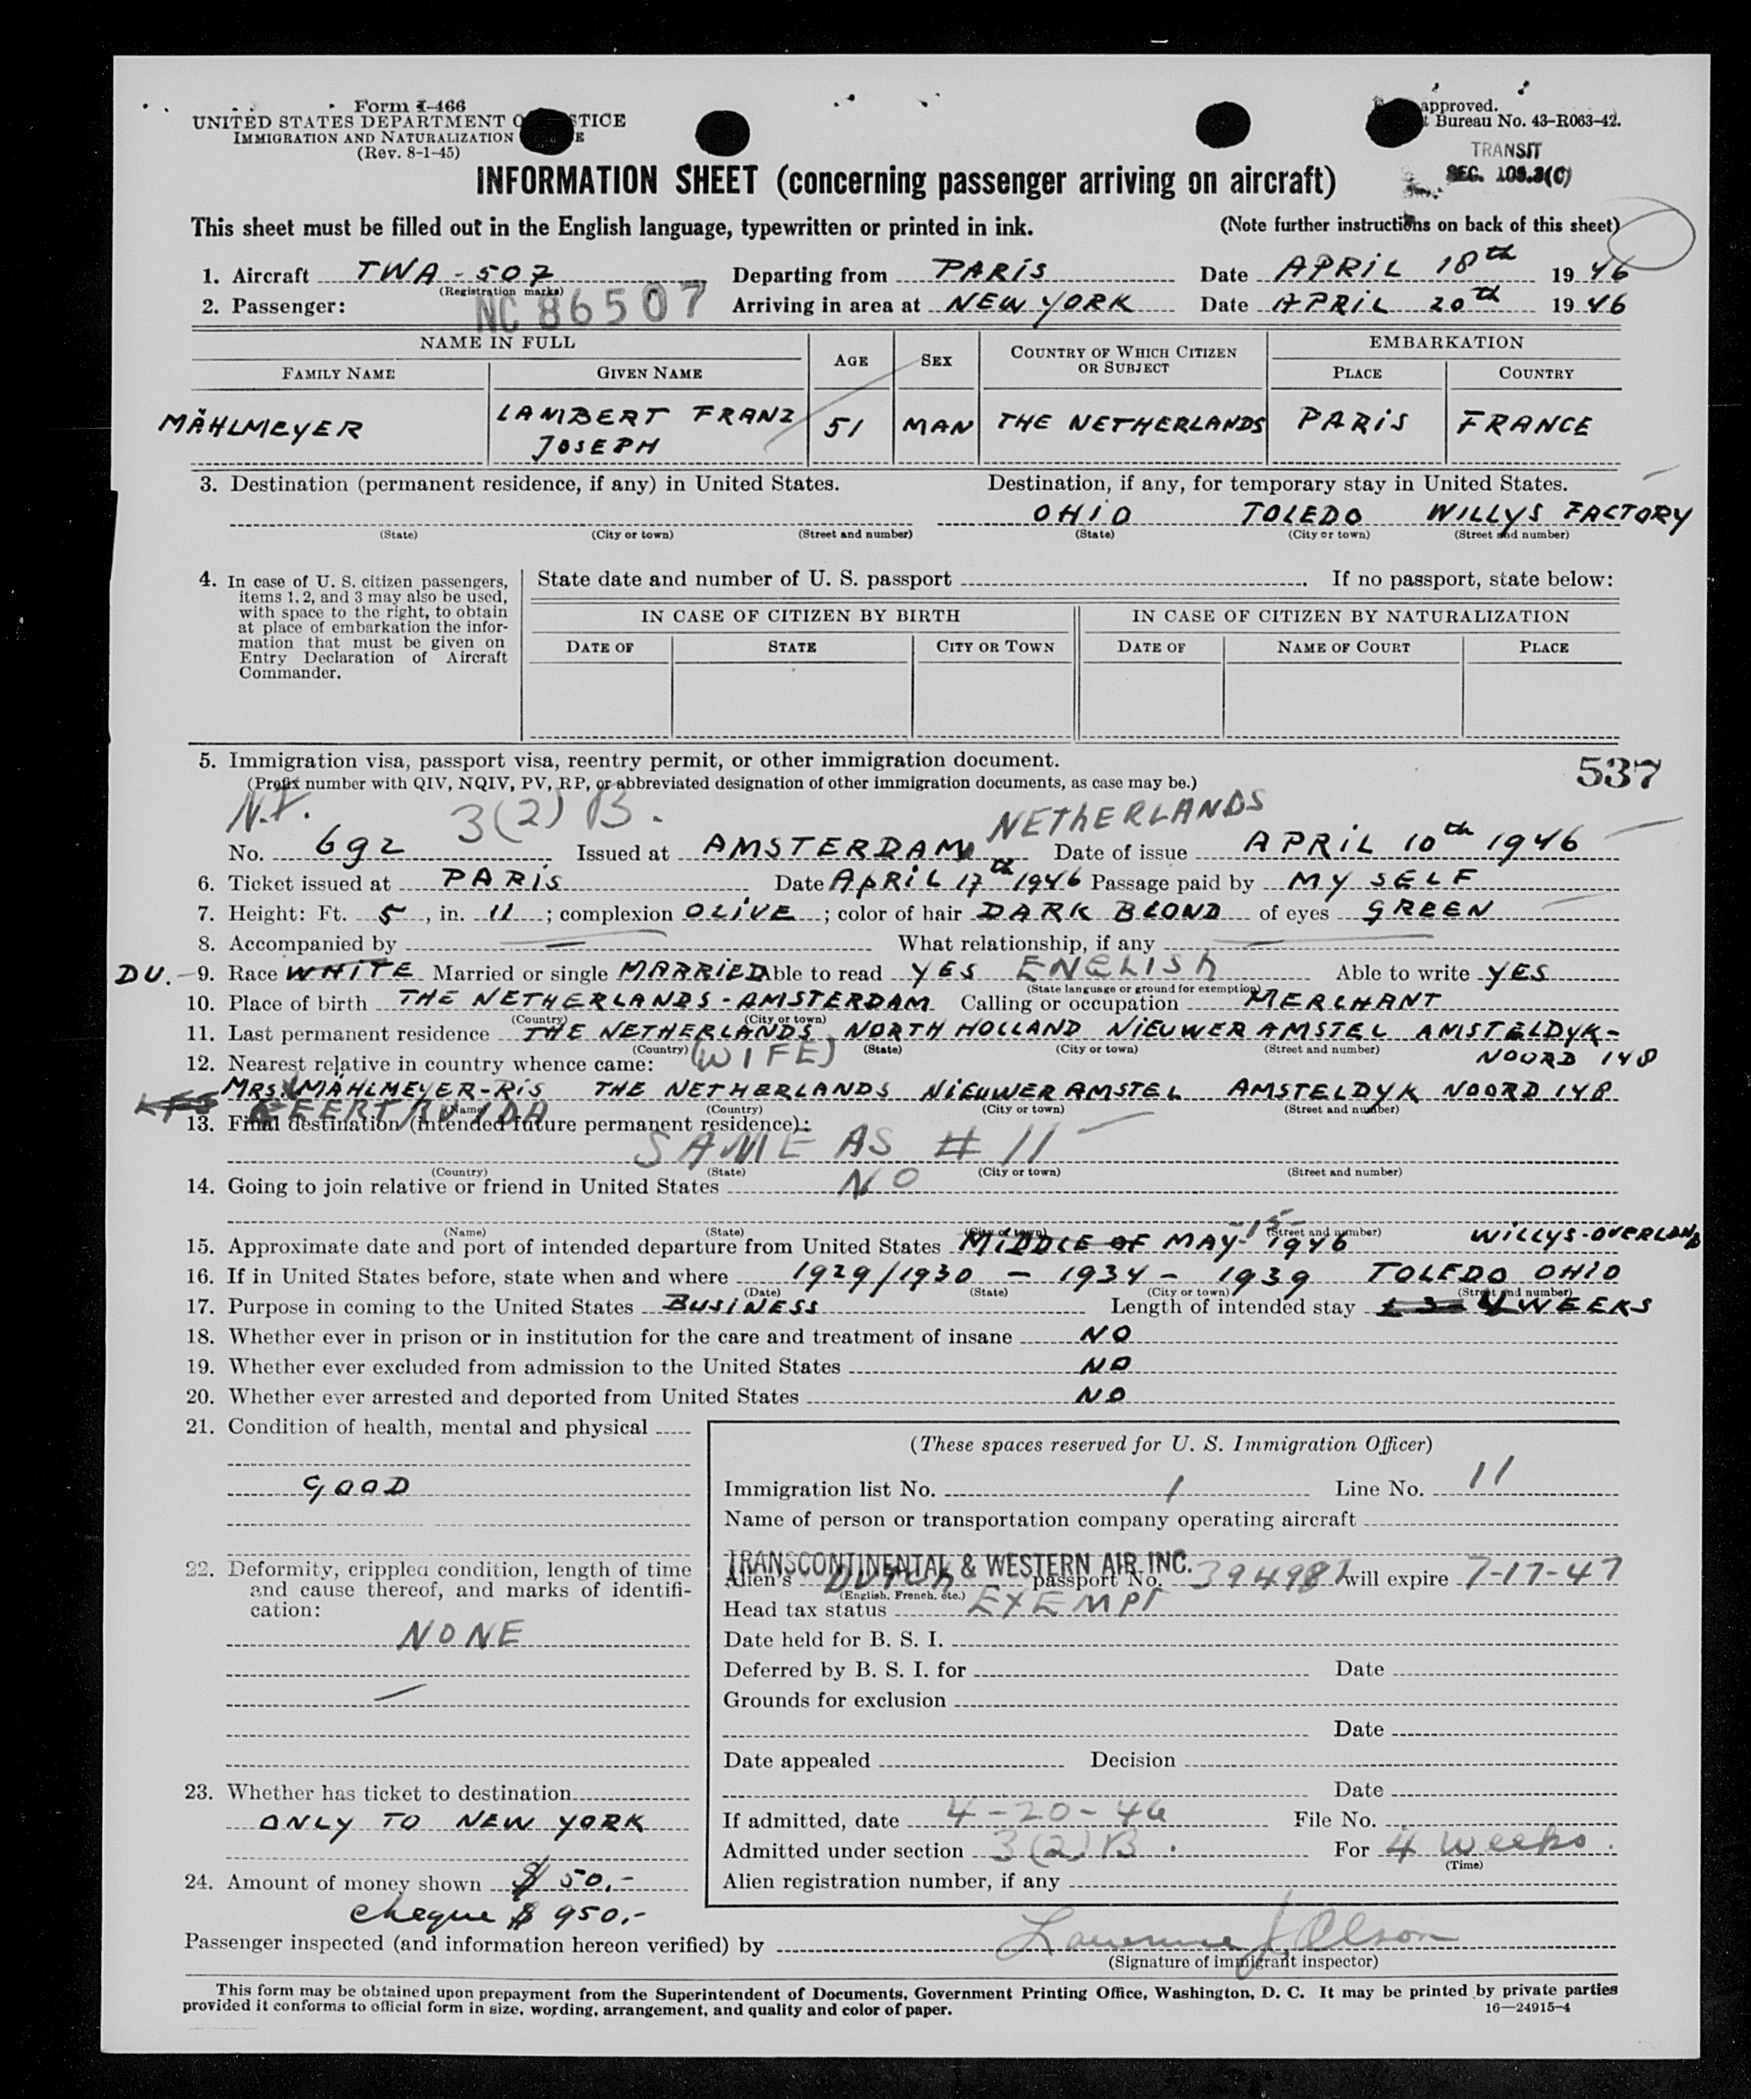 Form I-466
UNITED STATES DEPARTMENT O STICE
IMMIGRATION AND NATURALIZATION E
(Rev. 8-1-45)
approved.
t Bureau No. 43-R063-42.
TRANSIT
SEC. 103.3(C)
INFORMATION SHEET (concerning passenger arriving on aircraft)
This sheet must be filled out in the English language, typewritten or printed in ink. (Note further instructions on back of this sheet)
1. Aircraft TWA-507 Departing from PARIS Date APRIL 18th 1946
(Registration marks)
NC 86507
2. Passenger: Arriving in area at NEW YORK Date APRIL 20th 1946
NAME IN FULL AGE SEX COUNTRY OF WHICH CITIZEN OR SUBJECT EMBARKATION
FAMILY NAME GIVEN NAME PLACE COUNTRY
MÄHLMEYER LAMBERT FRANZ JOSEPH 51 MAN THE NETHERLANDS PARIS FRANCE
3. Destination (permanent residence, if any) in United States. Destination, if any, for temporary stay in United States.
OHIO TOLEDO WILLYS FACTORY
(State) (City or town) (Street and number) (State) (City or town) (Street and number)
4. In case of U. S. citizen passengers, items 1, 2, and 3 may also be used, with space to the right, to obtain at place of embarkation the information that must be given on Entry Declaration of Aircraft Commander.
State date and number of U. S. passport . If no passport, state below:
IN CASE OF CITIZEN BY BIRTH IN CASE OF CITIZEN BY NATURALIZATION
DATE OF STATE CITY OR TOWN DATE OF NAME OF COURT PLACE
5. Immigration visa, passport visa, reentry permit, or other immigration document.
537
(Prefix number with QIV, NQIV, PV, RP, or abbreviated designation of other immigration documents, as case may be.)
3(2) B. NETHERLANDS
No. 692 Issued at AMSTERDAM Date of issue APRIL 10th 1946
6. Ticket issued at PARIS Date APRIL 17th 1946 Passage paid by MY SELF
7. Height: Ft. 5, in. 11; complexion OLIVE; color of hair DARK BLOND of eyes GREEN
8. Accompanied by — What relationship, if any —
DU. 9. Race WHITE Married or single MARRIED Able to read YES ENGLISH Able to write YES
(State language or ground for exemption)
10. Place of birth THE NETHERLANDS - AMSTERDAM Calling or occupation MERCHANT
(Country) (City or town)
11. Last permanent residence THE NETHERLANDS NORTH HOLLAND NIEUWER AMSTEL AMSTELDYK-NOORD 148
(Country) (State) (City or town) (Street and number)
12. Nearest relative in country whence came: (WIFE)
MRS. MÄHLMEYER-RIS THE NETHERLANDS NIEUWER AMSTEL AMSTELDYK NOORD 148
GEERTRUIDA
(Name) (Country) (City or town) (Street and number)
13. Final destination (intended future permanent residence):
SAME AS # 11
(Country) (State) (City or town) (Street and number)
14. Going to join relative or friend in United States NO
(Name) (State) (City or town) (Street and number)
15. Approximate date and port of intended departure from United States MIDDLE OF MAY-15-1946
WILLYS-OVERLAND
16. If in United States before, state when and where 1929/1930 - 1934 - 1939 TOLEDO OHIO
(Date) (State) (City or town) (Street and number)
17. Purpose in coming to the United States BUSINESS Length of intended stay 4 WEEKS
18. Whether ever in prison or in institution for the care and treatment of insane NO
19. Whether ever excluded from admission to the United States NO
20. Whether ever arrested and deported from United States NO
21. Condition of health, mental and physical
GOOD
22. Deformity, crippled condition, length of time and cause thereof, and marks of identification:
NONE
—
23. Whether has ticket to destination
ONLY TO NEW YORK
24. Amount of money shown $ 50,-
cheque $ 950,-
(These spaces reserved for U. S. Immigration Officer)
Immigration list No. 1 Line No. 11
Name of person or transportation company operating aircraft
TRANSCONTINENTAL & WESTERN AIR, INC.
Alien's DUTCH passport No. 394982 will expire 7-17-47
(English, French, etc.)
Head tax status EXEMPT
Date held for B. S. I.
Deferred by B. S. I. for Date
Grounds for exclusion
Date
Date appealed Decision
Date
If admitted, date 4-20-46 File No.
Admitted under section 3(2)B. For 4 weeks.
(Time)
Alien registration number, if any
Passenger inspected (and information hereon verified) by Lawrence J. Olson
(Signature of immigrant inspector)
This form may be obtained upon prepayment from the Superintendent of Documents, Government Printing Office, Washington, D. C. It may be printed by private parties
provided it conforms to official form in size, wording, arrangement, and quality and color of paper. 16—24915-4